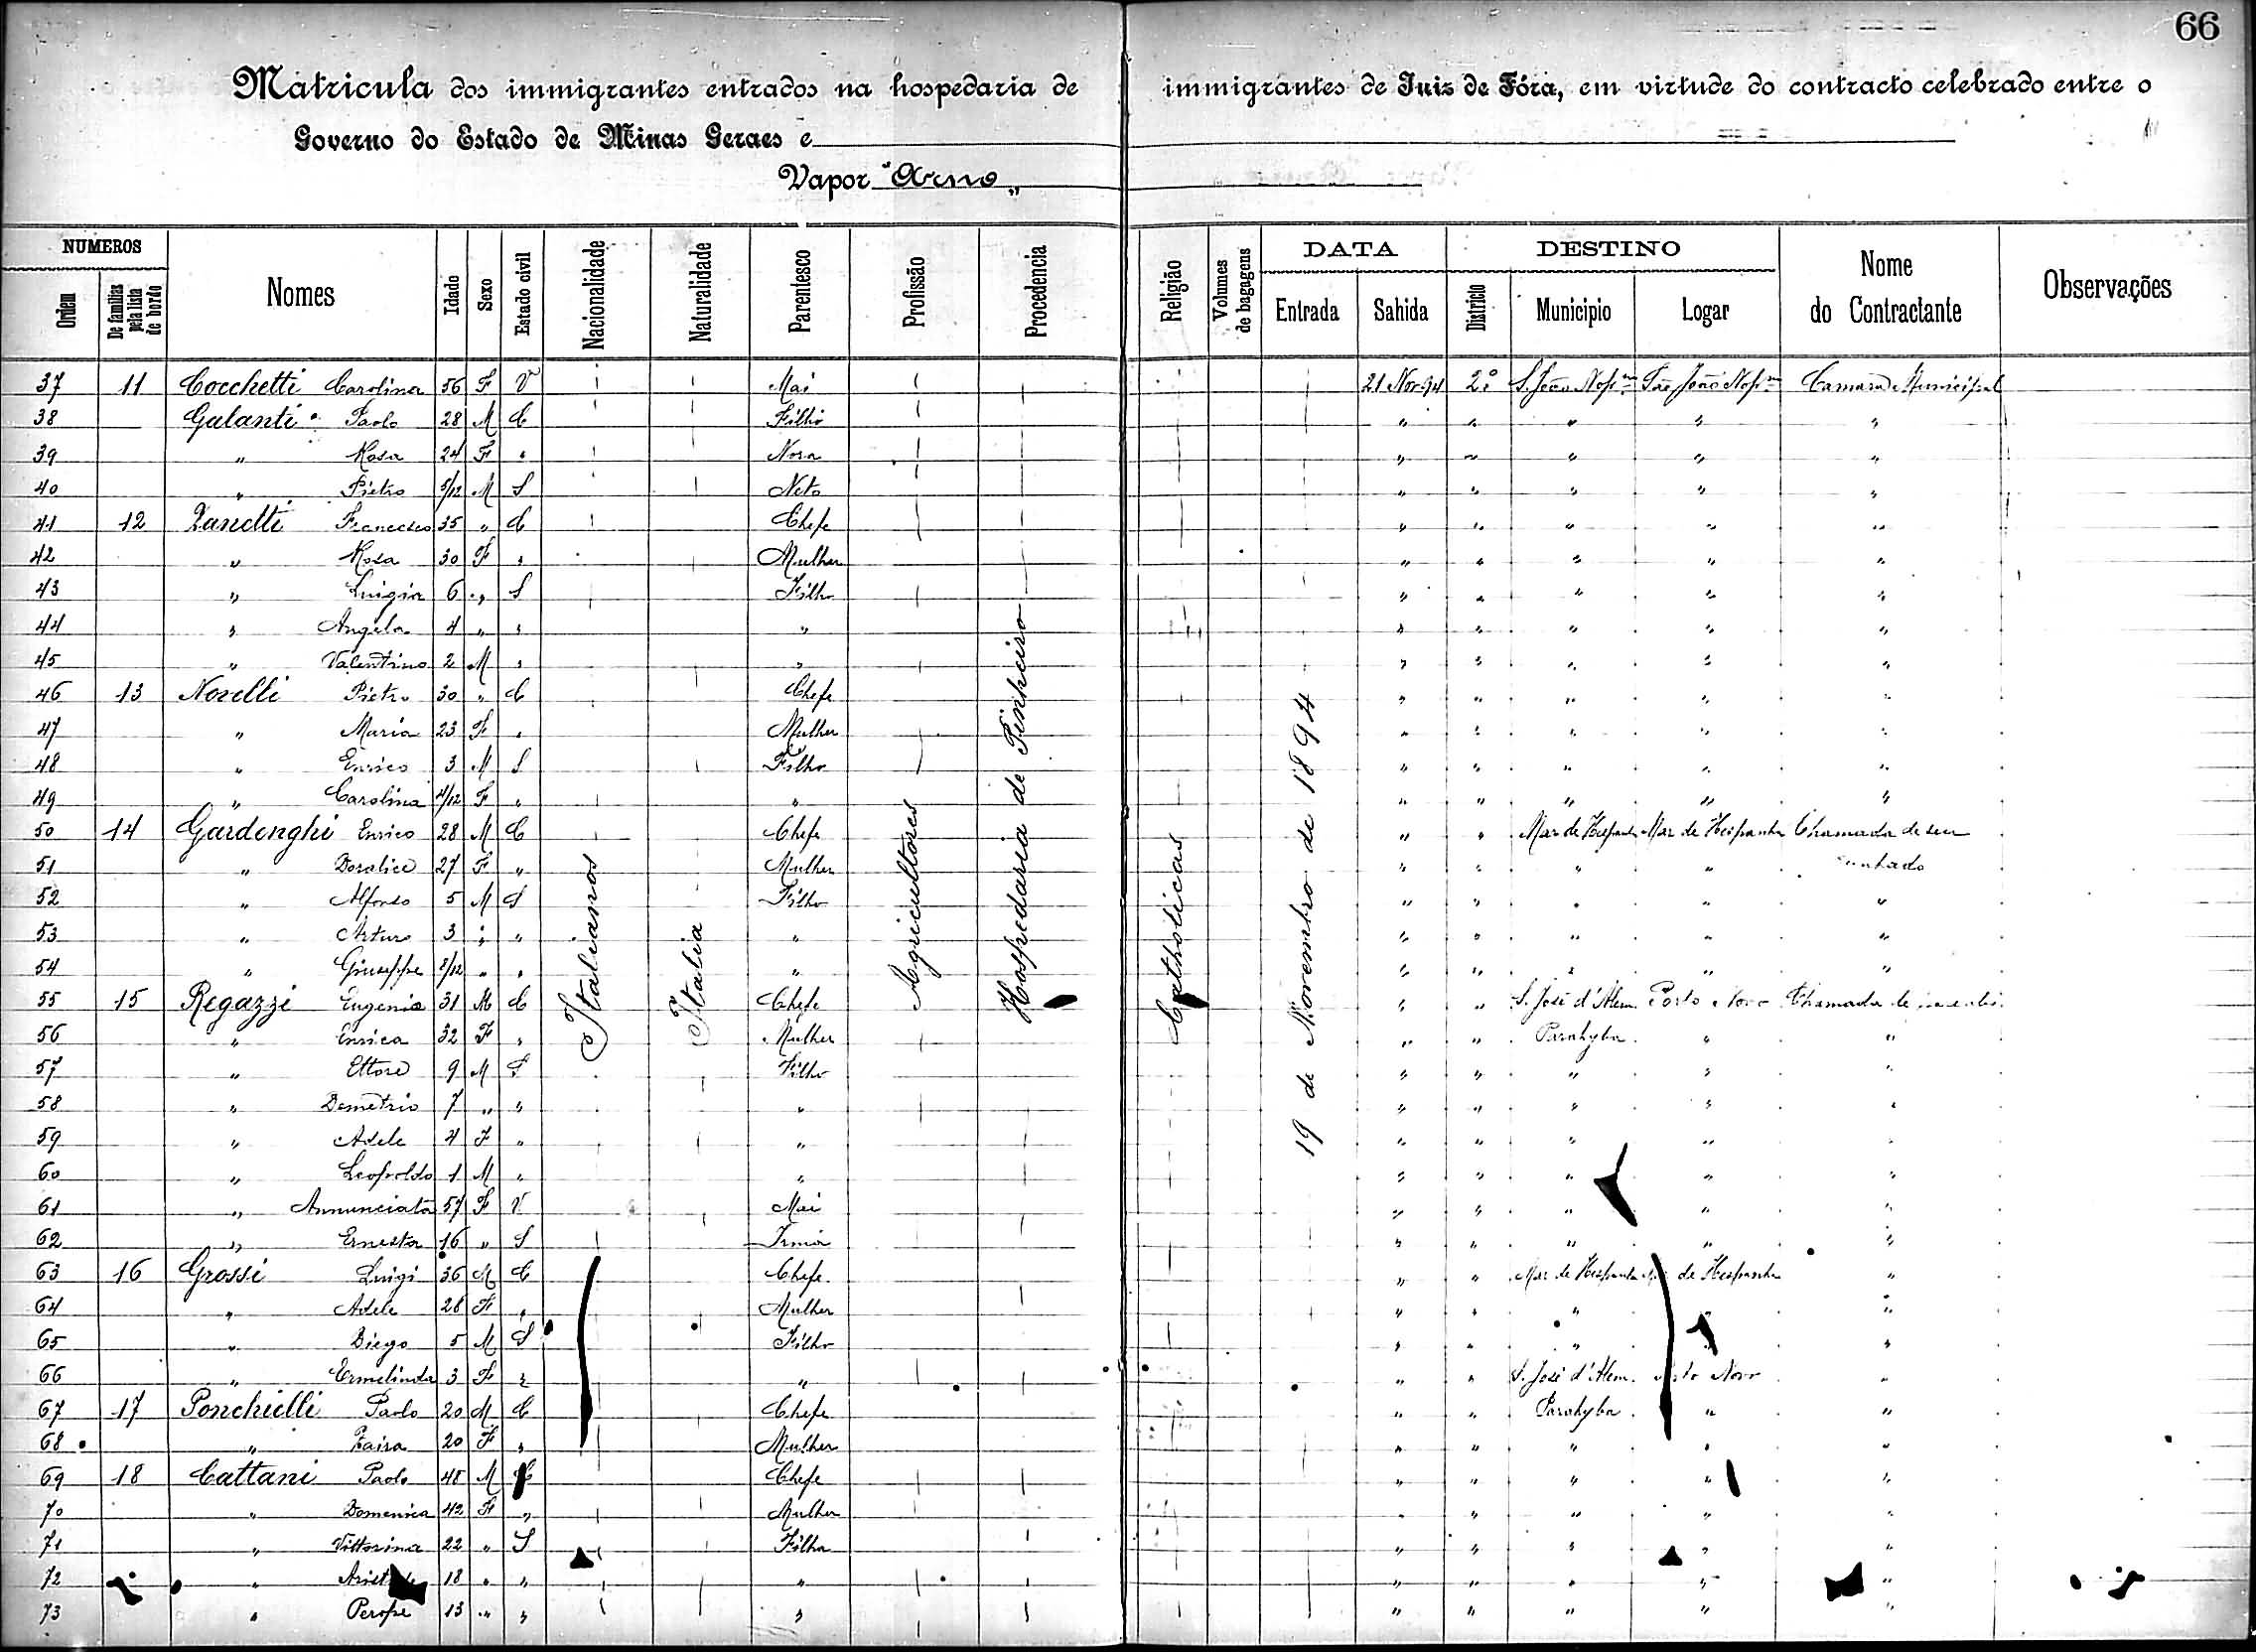 66
Matricula dos immigrantes entrados na hospedaria de immigrantes de Juiz de Fóra, em virtude do contracto celebrado entre o
Governo do Estado de Minas Geraes e
Vapor "Arno"
NUMEROS
Ordem De familias pela lista de bordo Nomes Idade Sexo Estado civil Nacionalidade Naturalidade Parentesco Profissão Procedencia Religião Volumes de bagagens DATA Entrada Sahida DESTINO Districto Municipio Logar Nome do Contractante Observações
37 11 Cocchetti Carolina 56 F V Mai 21 Nov. 94 2º S. João Nepm São João Nepm Camara Municipal
38 Galanti Paolo 28 M C Filho " " " " "
39 " Rosa 24 F " Nora " " " " "
40 " Pietro 5/12 M S Neto " " " " "
41 12 Zanetti Francesco 35 " C Chefe " " " " "
42 " Rosa 30 F " Mulher " " " " "
43 " Luigia 6 " S Filho " " " " "
44 " Angela 4 " " " " " " " "
45 " Valentino 2 M " " " " " " "
46 13 Novelli Pietro 30 " C Chefe " " " " "
47 " Maria 23 F " Mulher " " " " "
48 " Enrico 3 M S Filho " " " " "
49 " Carolina 4/12 F " " " " " " "
50 14 Gardenghi Enrico 28 M C Chefe " " Mar de Hespanha Mar de Hespanha Chamada de seu
51 " Doralice 27 F " Mulher " " " " cunhado
52 " Alfonso 5 M S Filho " " " " "
53 " Arturo 3 " " " " " " " "
54 " Giuseppe /12 " " " " " " " "
55 15 Regazzi Eugenio 31 M C Chefe " " S. José d'Alem Porto Novo Chamada de
56 " Enrica 32 F " Mulher " " Parahyba " "
57 " Ettore 9 M S Filho " " " " "
58 " Demetrio 7 " " " " " " " "
59 " Adele 4 F " " " " " " "
60 " Leopoldo 1 M " " " " " " "
61 " Annunciata 57 F V Mai " " " " "
62 " Ernesta 16 " S Irmã " " " " "
63 16 Grossi Luigi 36 M C Chefe " " Mar de Hespanha de Hespanha "
64 " Adele 28 F " Mulher " " " " "
65 " Diego 5 M S Filho " " " "
66 " Ermelinda 3 F " " " " S. José d'Alem Porto Novo "
67 17 Ponchielli Paolo 20 M C Chefe " " Parahyba " "
68 " Zaira 20 F " Mulher " " " " "
69 18 Cattani Paolo 48 M C Chefe " " " " "
70 " Domenica 42 F " Mulher " " " " "
71 " Vittorina 22 " S Filha " " " " "
72 " 18 " " " " " " " "
73 " Perope 13 " " " " " " " "
Italianos
Italia
Agricultores
Hospedaria de Pinheiro
Catholicas
19 de Novembro de 1894